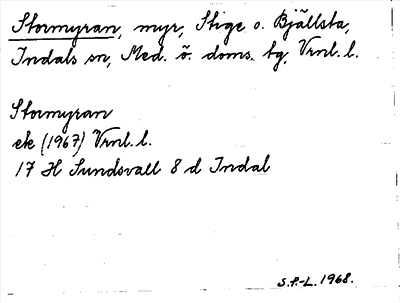 Stormyran, myr, Stige o. Bjällsta,
Indals sn, Med. ö. doms. tg, Vrnl. l.
Stormyran
ek (1967) Vrnl. l.
17 H Sundsvall 8 d Indal
S.P.-L. 1968.